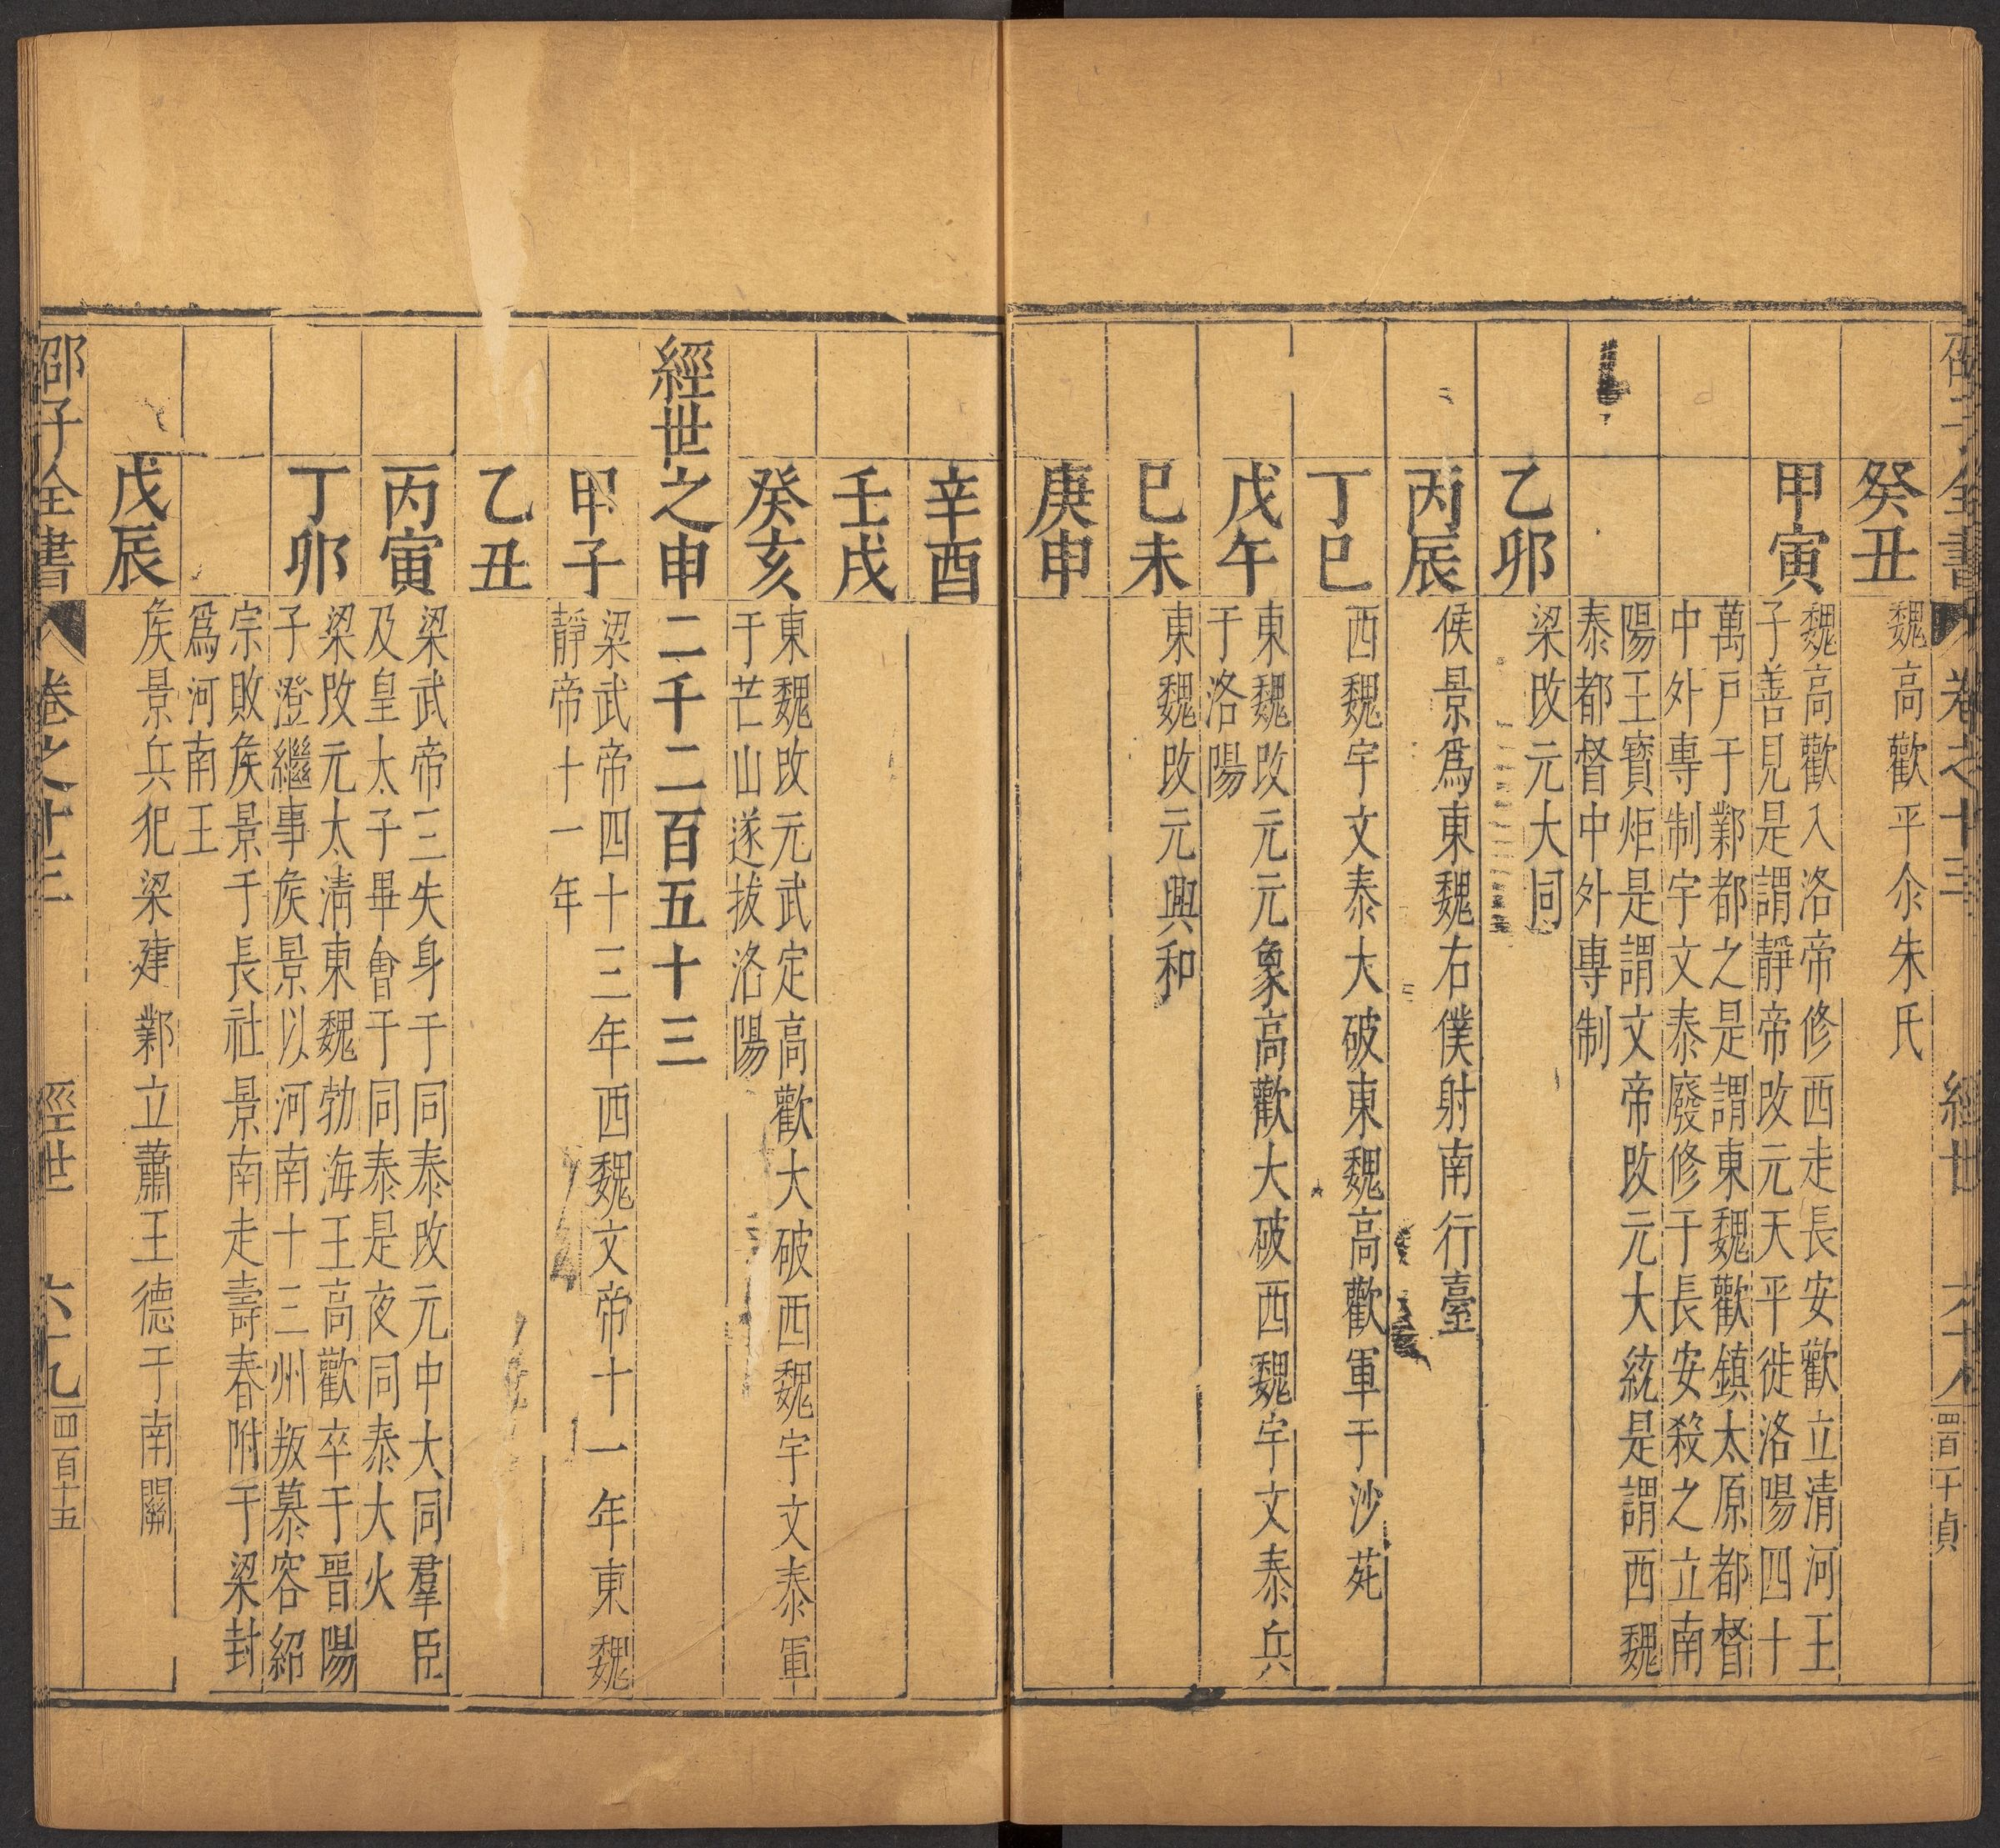 邵子全書 卷之十三 經世
癸丑
魏高歡平尒朱氏
甲寅
魏高歡入洛帝修西走長安歡立清河王
子善見是謂靜帝改元天平徙洛陽四十
萬戸于鄴都之是謂東魏歡鎮太原都督
中外專制宇文泰廢修于長安殺之立南
陽王寶炬是謂文帝改元大統是謂西魏
泰都督中外專制
乙卯
梁改元大同
丙辰
侯景爲東魏右僕射南行臺
丁巳
西魏宇文泰大破東魏高歡軍于沙苑
戊午
東魏改元元象高歡大破西魏宇文泰兵
于洛陽
己未
東魏改元興和
庚申
辛酉
壬戌
癸亥
東魏改元武定高歡大破西魏宇文泰軍
于芒山遂拔洛陽
經世之申二千二百五十三
甲子
梁武帝四十三年西魏文帝十一年東魏
靜帝十一年
乙丑
丙寅
梁武帝三失身于同泰改元中大同羣臣
及皇太子畢會于同泰是夜同泰大火
丁卯
梁改元太清東魏勃海王高歡卒于晉陽
子澄繼事矦景以河南十三州叛慕容紹
宗敗矦景于長社景南走壽春附于梁封
爲河南王
戊辰
矦景兵犯梁建鄴立蕭王德于南闕
邵子全書 卷之十三 經世 六十九 四百十五